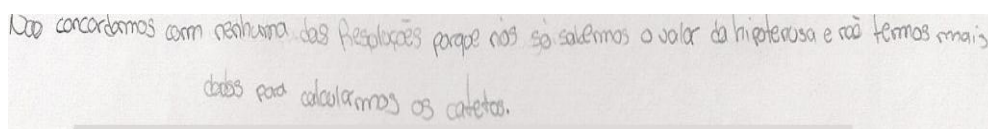 Não concordamos com nenhuma das Resoluções porque nós só sabemos o valor da hipotenusa e não temos mais
dados para calcularmos os catetos.